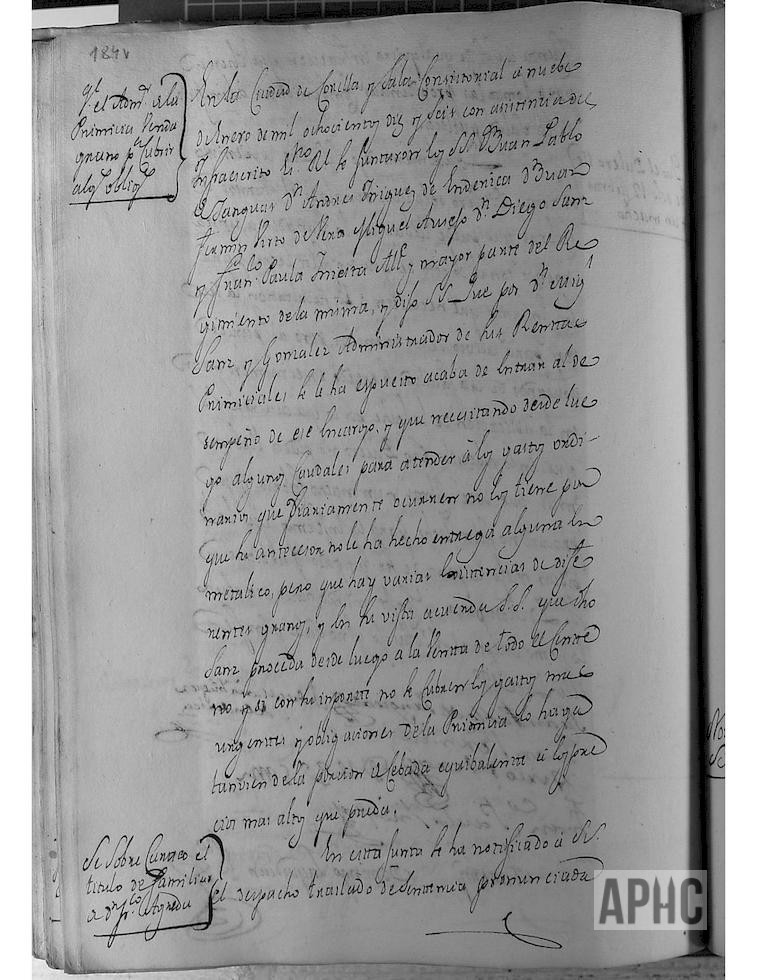 184v
q.e el Adm.r de la
Primicia Venda
granos p.a Cubrir
alg.s oblig.s
En la Ciudad de Corella y Sala Consistorial a nuebe
de Enero de mil ochocientos diez y seis con asistencia de
Ynfraescrito Es.no R.l se Juntaron los SS. D.n Juan Pablo
D.n Andres Yñiguez de D.n Juan
Fermin Virto de Vera Miguel D.n Diego Sanz
y Fran.co Paula Yniesta Alf.z y mayor parte del Re
gimiento de la misma, y dijo S.S. Que por D.n Mig.l
Sanz y Gonzalez Administrador de sus Renttas
Primiciales se le ha espuesto acaba de Entrar al de
sempeño de ese Encargo, y que necesitando desde lue
go algunos Caudales para atender à los gastos ordi-
narios que Diariamente ocurren no los tiene por
que su antecesor no le ha hecho entrega alguna en
metalico, pero que hay varias Existencias de dife
rentes granos, y en su vista acuerda S.S. que dho
Sanz proceda desde luego a la Ventta de todo el Cente
no y si con su inporte no se Cubren los gastos mas
urgentes y obligaciones de la Primicia lo haga
tanvien de la porcion de Cebada equibalente a los pre
cios mas altos que pueda.
Se Sobre Carteo el
titulo de familiar
a D.n Fr.co Agreda
En esta Junta se ha notificado a S.S.
el despacho trasladado de Sentencia pronunciada
APHC